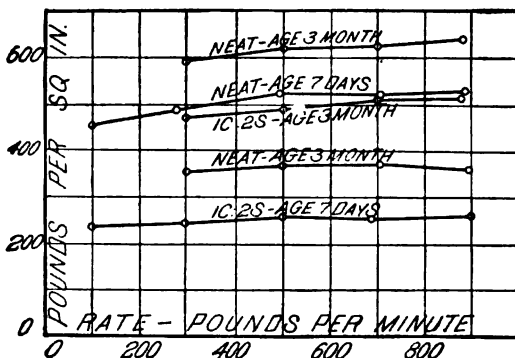 600
400
200
0
POUNDS PER SQ IN.
NEAT-AGE 3 MONTH
NEAT-AGE 7 DAYS
1C:2S-AGE 3 MONTH
NEAT-AGE 3 MONTH
1C:2S-AGE 7 DAYS
RATE - POUNDS PER MINUTE
0 200 400 600 800